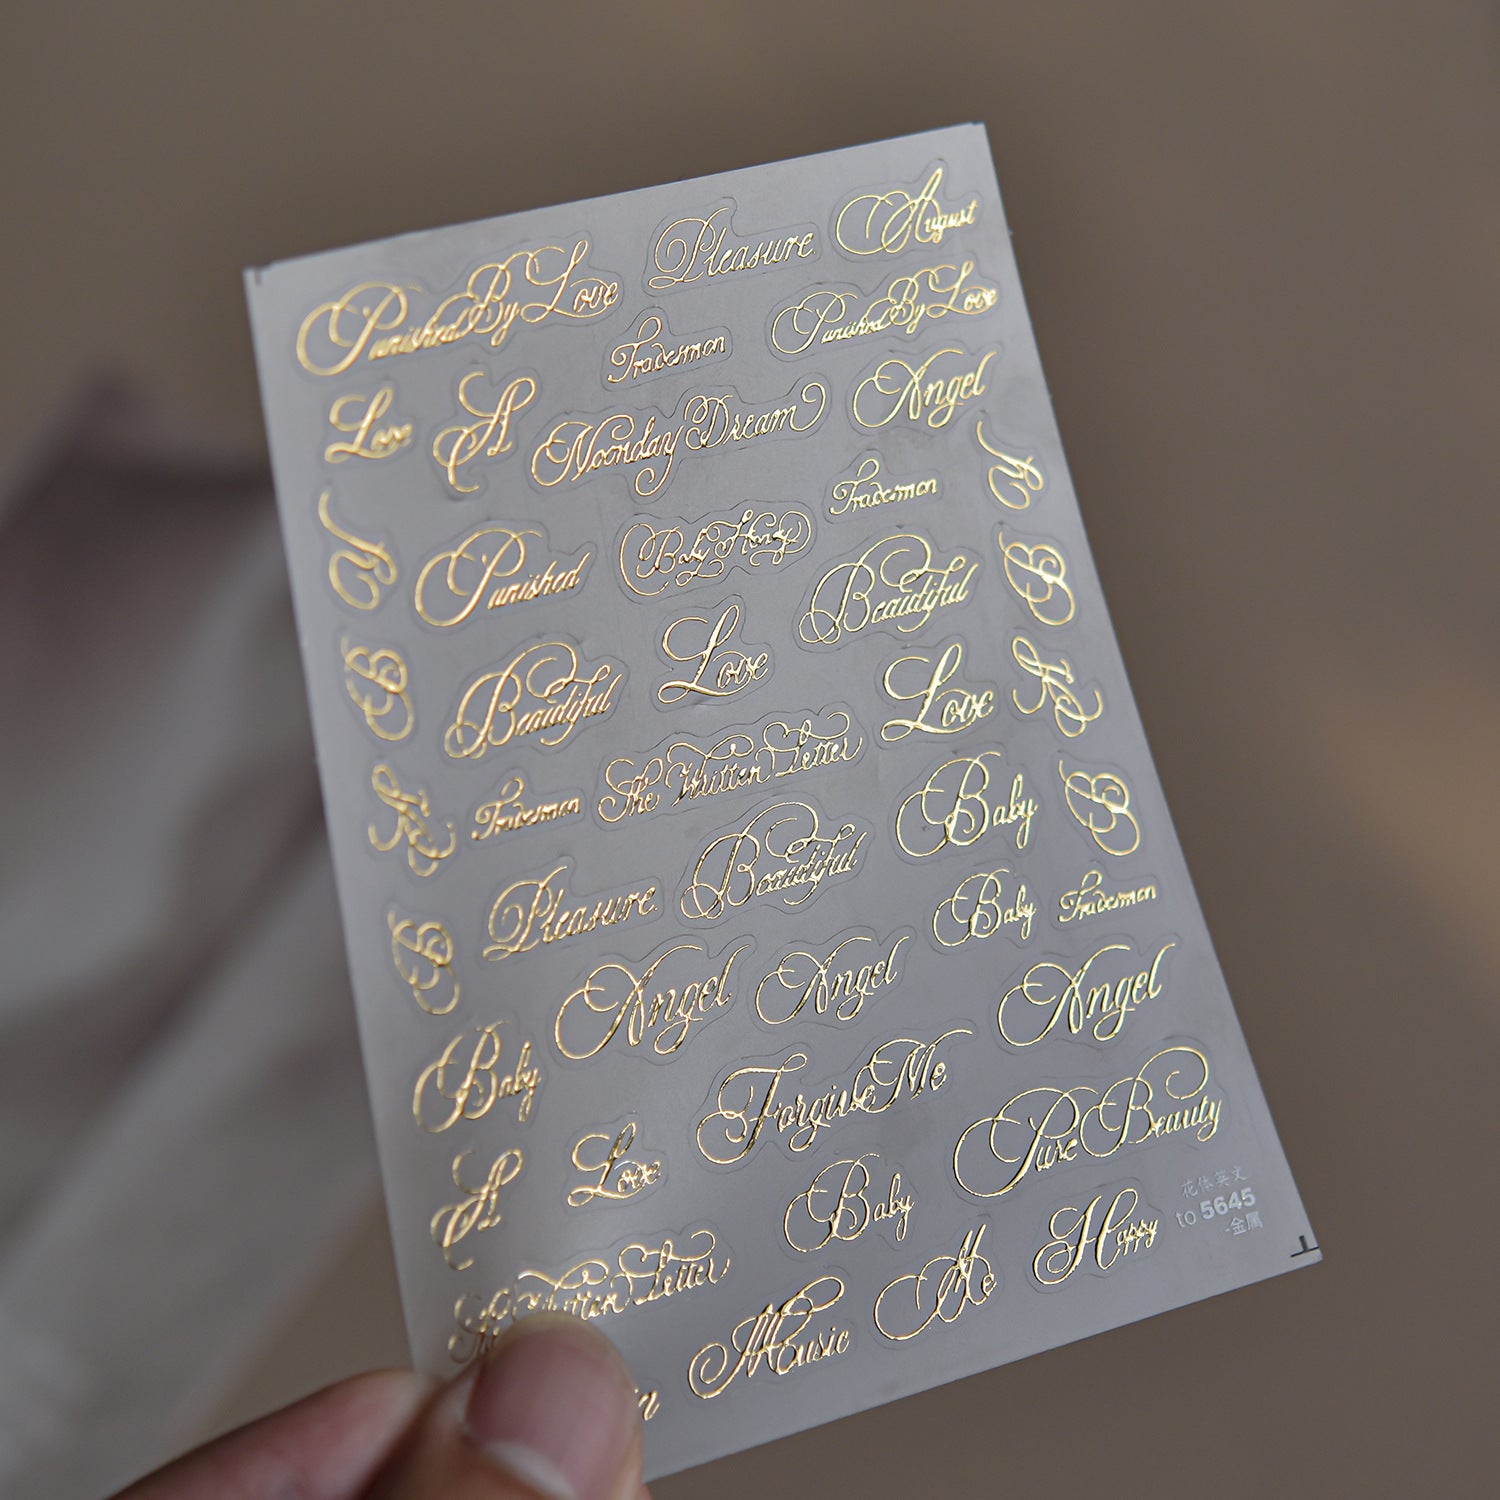 Punished By Love
Pleasure
August
Tradesman
Punished By Love
Love
A
Noonday Dream
Angel
Tradesman
Punished
Baby Honey
Beautiful
B
B
Beautiful
Love
Love
Tradesman
The Written Letter
Baby
B
Pleasure
Beautiful
Baby
Tradesman
B
Angel
Angel
Angel
Baby
Forgive Me
Pure Beauty
A
Love
Baby
花体英文
to 5645
-金属
The Written Letter
Music
Me
Happy